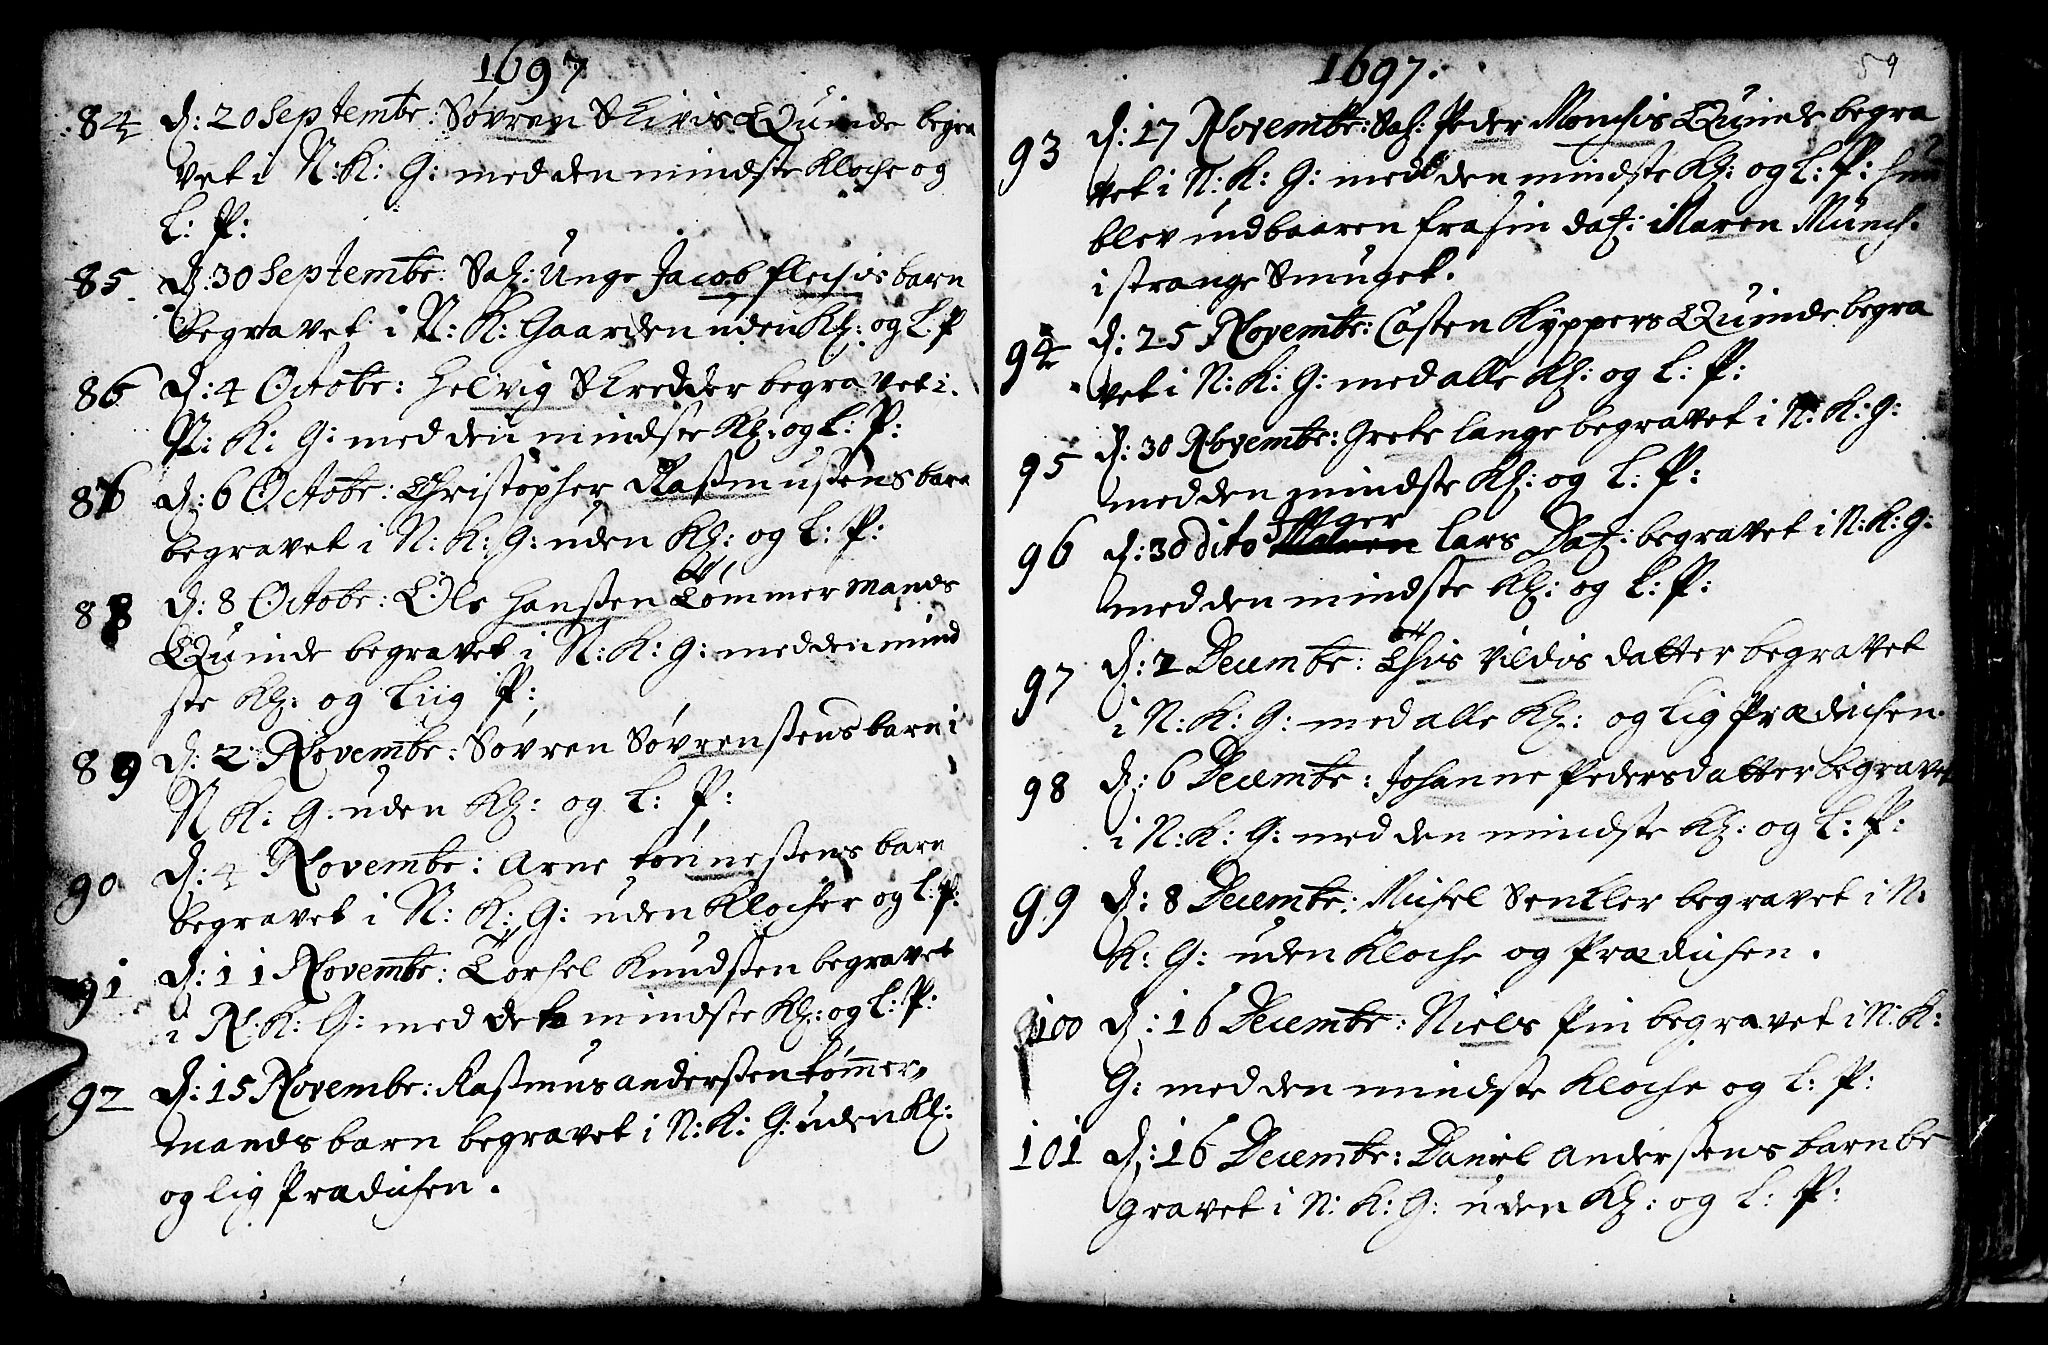 1697
84 d: 20 Septembr: Søvren Skivis Quinde begra
vet i N: K: G: med den mindste Klocke og
L: P:
85. d: 30 Septembr: Sal: Unge Jacob fleckis barn
begravet i N: K: Gaarden uden Kl: og L: P
86 d: 4 Octobr: Helvig Skredder begravet i
N: K: G: med den mindste Kl: og L: P:
87 d: 6 Octobr: Christopher Rasmussens barn
begravet i N: K: G: uden Kl: og L: P:
88 d: 8 Octobr: Ole Hanssen Tømmermands
Quinde begravet i N: K: G: med den mind
ste Kl: og Liig P:
89 d: 2 Novembr: Søvren Søvrenssens barn i
N K: G: uden Kl: og L: P:
90 d: 4 Novembr: Arne tønnessens barn
begravet i N: K: G: uden Klocker og L: P:
91 d: 11 Novembr: Torkel Knudssen begravet
i N: K: G: med de mindste Kl: og L: P:
92 d: 15 Novembr: Rasmus anderssen tømer=
mands barn begravet i N: K: G: uden Kl:
og lig Prædicken.
1697. 59
93 d: 17 Novembr: Sal: Peder Monckis Quinde begra
vet i N: K: G: med den mindste Kl: og L: P: hun
blev udbaaren fra sin dat: Maren Munck.
i strange Smuget.
94 d: 25 Novembr: Casten Kyppers Quinde begra
vet i N: K: G: med alle Kl: og L: P:
95 d: 30 Novembr: Grete lange begravet i N: K: G:
med den mindste Kl: og L: P:
96 d: 30 dito lars Dat: begravet i N: K: G:
med den mindste Kl: og L: P:
97 d: 2 Decembr: This Vildis datter begravet
i N: K: G: med alle Kl: og lig Prædicken.
98 d: 6 Decembr: Johanne Pedersdatter begravet
i N: K: G: med den mindste Kl: og L: P:
99 d: 8 Decembr: Mickel Senkler begravet i N:
K: G: uden Klocke og Prædicken.
100 d: 16 Decembr: Niels Pin begravet i N: K:
G: med den mindste Klocke og L: P:
101 d: 16 Decembr: Daniel Anderssens barn be
gravet i N: K: G: uden Kl: og L: P: